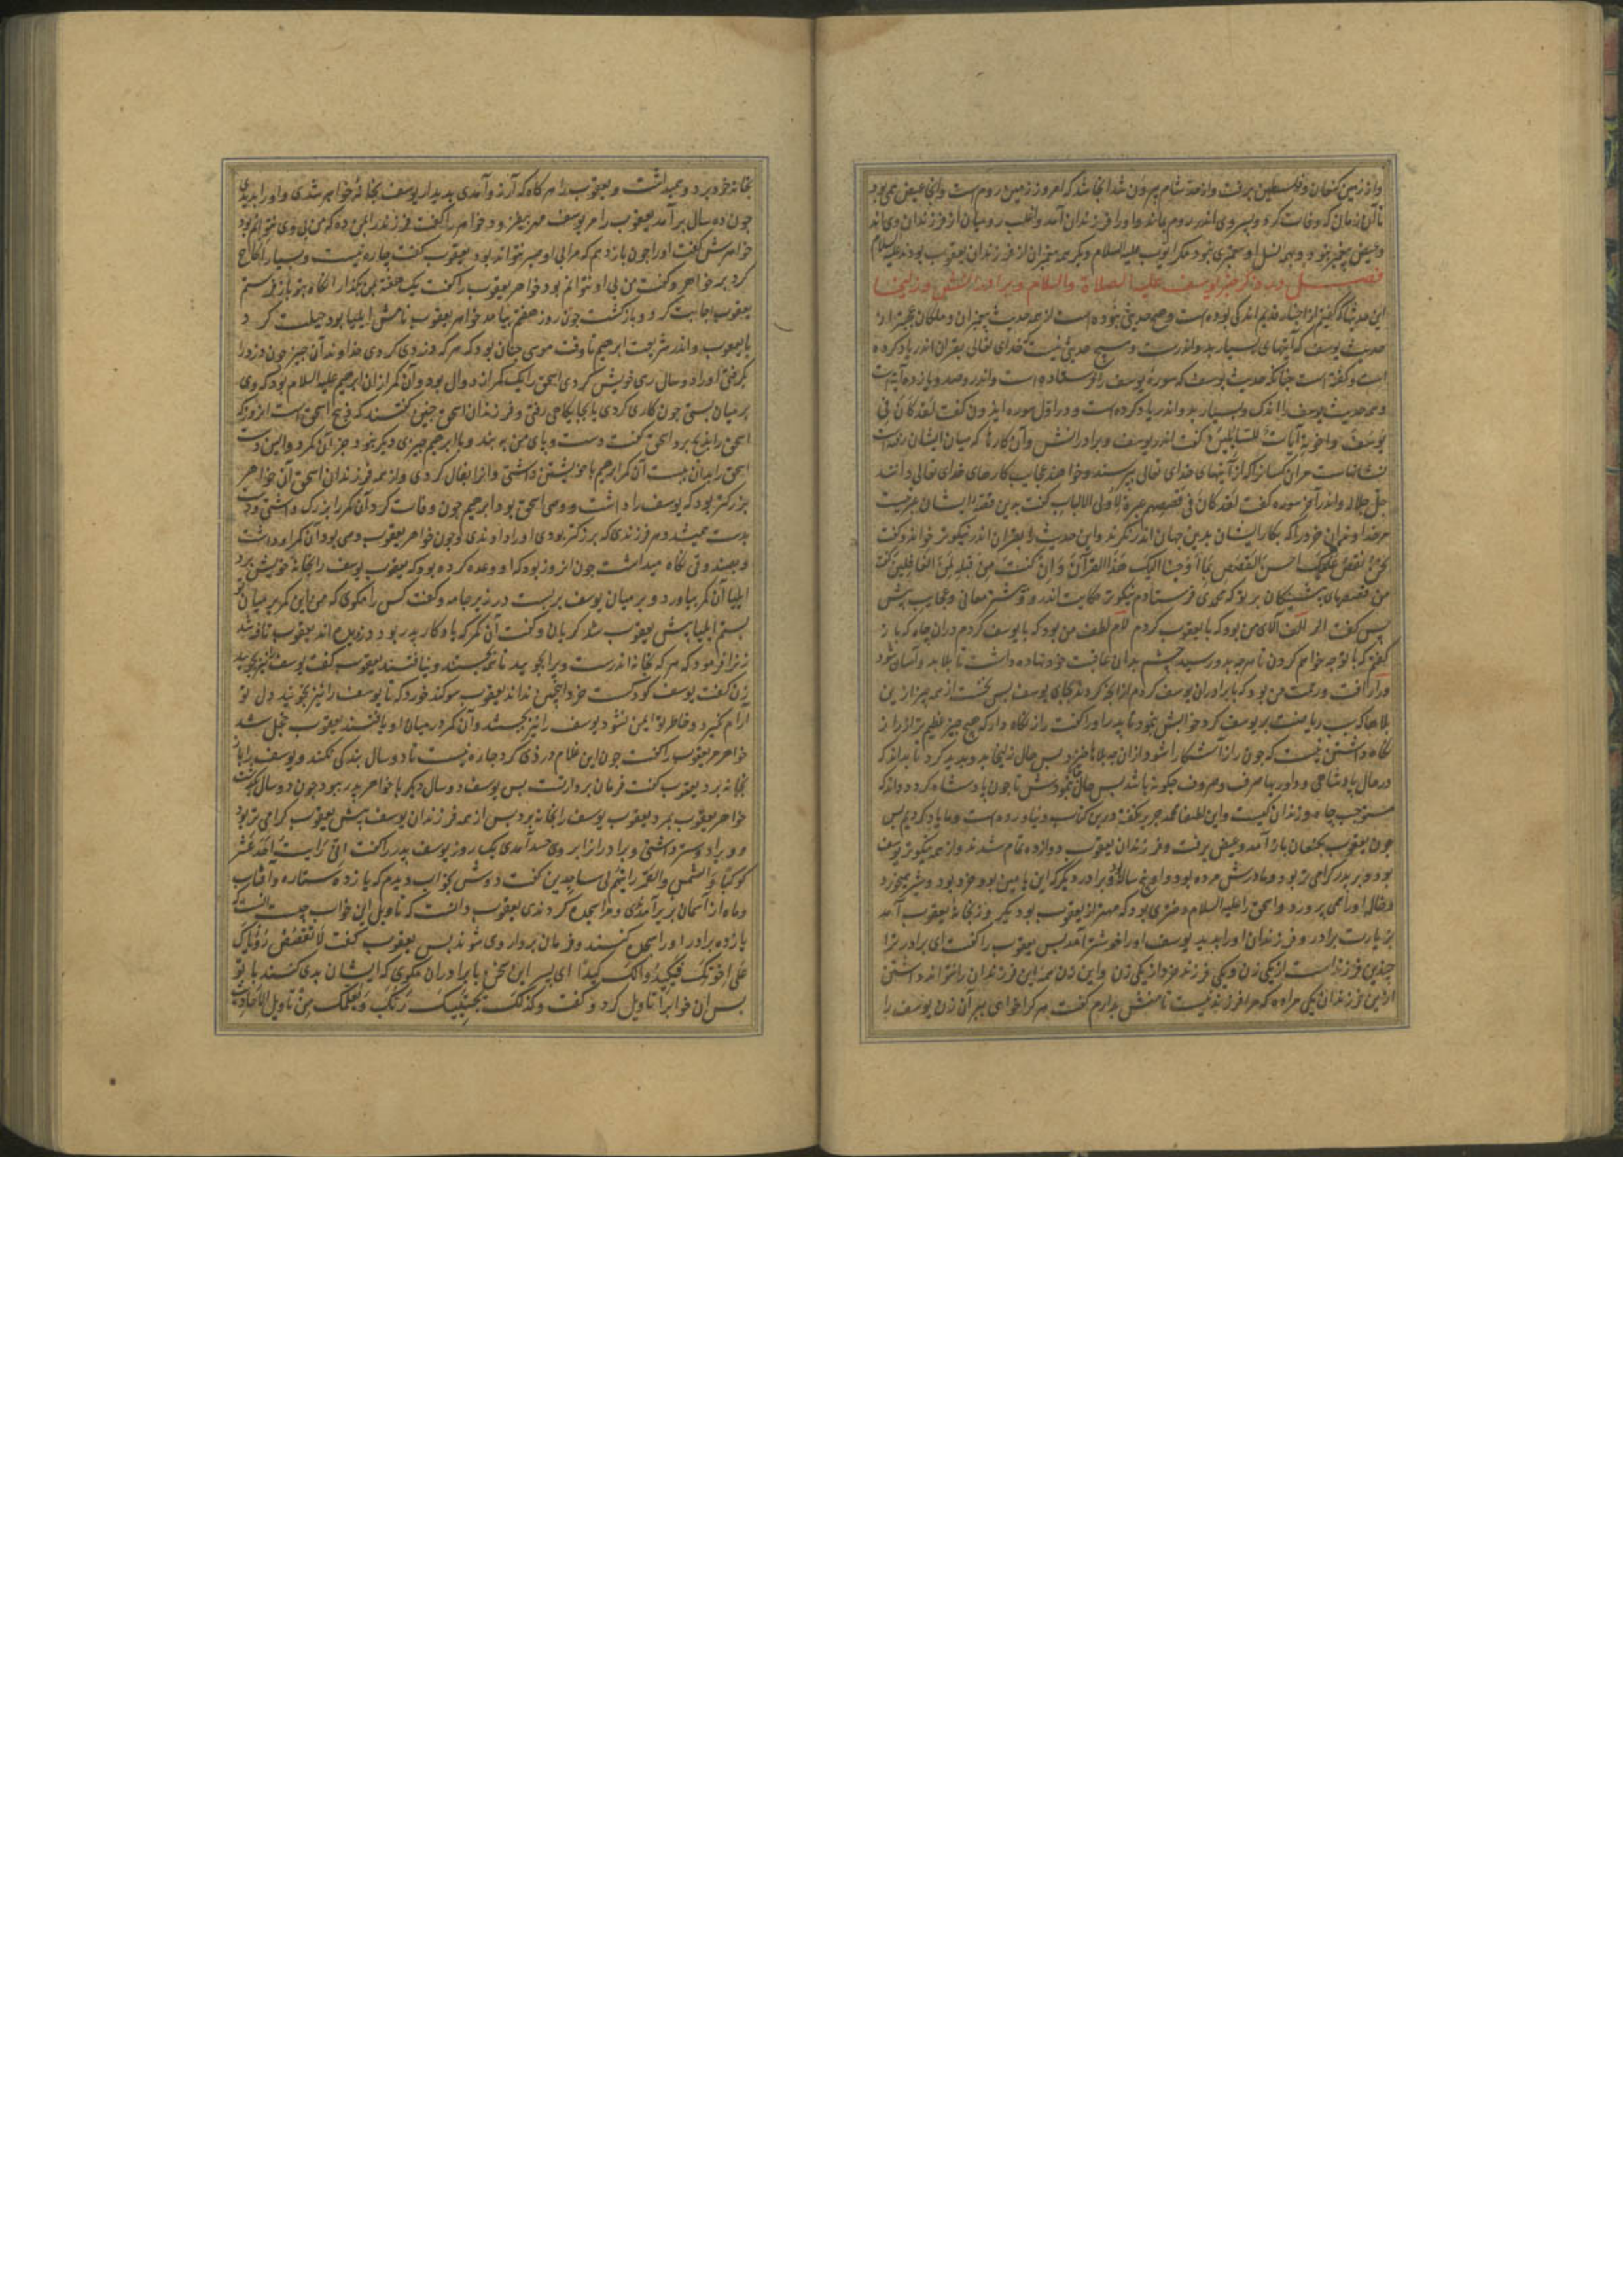 واز زمین کنعان و فلسطین برفت واز حد شام بیرون شد آنجا شد که امروز زمین روم است وآنجا عیص همی بود
تا آن زمان که وفات کرد و پسروی اندر روم بماند واورا فرزندان آمد واغلب رومیان از فرزندان وی اند
وعیص پیغمبر نبود و وبهی نسل او پیغمبری نبود مکر ایوب علیه السلام ودیکر همه پیغمبران از فرزندان یعقوب بودند علیه السلام
فصل در ذکر خبر یوسف علیه الصلاة والسلام وبرادرانش وزلیخا
این حدیثها که کفتیم از اخبار قدیم اندکی بوده است وهیچ حدیثی نبوده است از همه حدیث پیغمبران وملکان
حدیث یوسف که آیتهای بسیار بدو اندرست وهیچ حدیثی نیست خدای تعالی بقران اندر یاد کرده
است وکفته است چنانکه حدیث یوسف که سوره یوسف را فرستاده است واندرو صد ویازده آیت است
وهمه حدیث یوسف را اندک وبسیار بدو اندر یاد کرده است ودر اول سوره ایذون کفت لقد کان فی
یوسف واخوته آیات للسائلین کفت اندر یوسف وبرادرانش وآن کارها که میان ایشان رفت
نشانهاست مرآن کسانرا که از آیتهای خدای تعالی بپرسند وخواهند عجایب کارهای خدای تعالی دانند
جل جلاله واندر آخر سوره کفت لقد کان فی قصصهم عبرة لاولی الالباب کفت بدین قصه ایشان عبرتست
مرخداوندان خرد را که بکار ایشان بدین جهان اندر نکرند واین حدیث را بقران اندر نیکوتر خواند وکفت
نحن نقص علیک احسن القصص بما اوحینا الیک هذا القرآن وان کنت من قبله لمن الغافلین کفت
من قصهای پیشینکان بر تو که محمدی فرستادم نیکوتر حکایت اندرو معانی وعجایب پیش
پس کفت الر الف آلای من بود که با یعقوب کردم لام لطف من بود که با یوسف کردم در آن چاه که باز
کفتم که با تو چه خواهم کردن تا هرچه بدو رسید چشم بدان عافیت خود نهاده داشت تا بلا بدو آسان شود
ورا رأفت ورحمت من بود که با برادران یوسف کردم از آنچه کردند بجای یوسف پس نخست از همه چیز ازین
بلاها که بریوسف کرد خوابش بنمود تا پدر اورا کفت راز نکاه دار که هیچ چیز عظیم تر از راز
نکاه داشتن نیست که چون راز آشکارا شود از آن بلاها خیزد پس حال زلیخا پدید کرد تا بداند که
در حال پادشاهی وداوریها صرف وحروف چکونه باشد پس حال نمودش تا چون پادشاه کردد داند که
مستوجب چاه وزندان کیست واین لطفها محمد جریر نکفته ودرین کتاب نیاورده است وما یاد کردیم پس
چون یعقوب بکنعان باز آمد وعیص برفت وفرزندان یعقوب دوازده تمام شدند واز همه نیکوتر یوسف
بود وبر پدر کرامی تر بود ومادرش مرده بود واو پنج ساله بود وبرادر دیکر که ابن یامین بود خرد بود وشیر میخورد
وخاله اورا همی پرورد واسحق را علیه السلام دختری بود که مهتر از یعقوب بود یک روز بخانه یعقوب آمد
بزیارت برادر وفرزندان اورا بدید یوسف اورا خوشتر آمد پس یعقوب را کفت ای برادر ترا
چندین فرزند است از یکی زن ویکی فرزند خرد از یکی زن واین زن همه این فرزندان را نتواند داشتن
ازین فرزندان یکی مراده که مرا فرزند نیست تا منش بدارم کفت هر کرا خواهی ببر آن زن یوسف را
بخانه خود برد وهمیداشت ویعقوب را هرکاه که آرزو آمدی بدیدار یوسف بخانه خواهر شدی واورا بدیدی
چون ده سال برآمد یعقوب را مر یوسف مهر بیفزود خواهر را کفت فرزند را بمن ده که من بی وی نتوانم بود
خواهرش کفت اورا چون باز دهم که مرا بی او صبر نتواند بود یعقوب کفت چاره نیست وبسیار الحاح
کرد بر خواهر وکفت من بی او نتوانم بود خواهر یعقوب را کفت یک هفته بمن بکذار آنکاه بتو باز فرستم
یعقوب اجابت کرد وبازکشت چون روز هفتم بیامد خواهر یعقوب نامش ایلیا بود حیلت کرد
با یعقوب واندر شریعت ابرهیم تا وقت موسی چنان بود که هرکه دزدی کردی خداوند آن چیز چون دزد را
بکرفتی اورا دو سال رهی خویش کردی اسحق را یک کمر از دوال بود وآن کمر از آن ابرهیم علیه السلام بود که وی
بر میان بستی چون کاری کردی یا بجایکاهی رفتی وفرزندان اسحق چنین کفتند که ذبیح اسحق است آنروز که
اسحق را بذبح برد اسحق کفت دست وپای من ببند وبا ابرهیم چیزی دیکر نبود جز آن کمر دوالین دست
اسحق را بدان ببست آن کمر ابرهیم با خویشتن داشتی واز آن فال کردی واز همه فرزندان اسحق آن خواهر
بزرکتر بود که یوسف را داشت ووصی اسحق بود ابرهیم چون وفات کرد آن کمر را بزرک داشتی
بدست همیشه هر فرزندی که بزرکتر بودی اورا دادندی وچون خواهر یعقوب وصی بود آن کمر او داشت
وبصندوقی نکاه میداشت چون آنروز بود که او وعده کرده بود که یعقوب یوسف را بخانه خویش برد
ایلیا آن کمر بیاورد وبر میان یوسف بربست در زیر جامه وکفت کس را مکوی که من این کمر بر میان تو
بستم ایلیا پیش یعقوب شد کریان وکفت آن کمر که یادکار پدر بود دزدیده اند یعقوب تافته شد
زنرا فرمود که هرکه بخانه اندرست ویرا بجویید تا همه بجستند ونیافتند یعقوب کفت یوسف را نیز بجویید
زن کفت یوسف کودکست خود این چنین نداند یعقوب سوکند خورد که تا یوسف را نیز بجویند دل تو
آرام نکیرد وخاطر تو ایمن نشود یوسف را نیز بجستند وآن کمر در میان او یافتند یعقوب خجل شد
خواهر مر یعقوب را کفت چون این غلام دزدی کرد چاره نیست تا دو سال بندکی کند ویوسف را باز
بخانه برد یعقوب کفت فرمان بردارست پس یوسف دو سال دیکر با خواهر پدر ببود چون دو سال بکذشت
خواهر یعقوب بمرد یعقوب یوسف را بخانه برد پس از همه فرزندان یوسف پیش یعقوب کرامی تر بود
وویرا دوستر داشتی وبرادرانرا بر وی حسد آمدی یک روز یوسف پدر را کفت انی رایت احد عشر
کوکبا والشمس والقمر رایتهم لی ساجدین کفت دوش بخواب دیدم که یازده ستاره وآفتاب
وماه از آسمان برآمدی ومرا سجده کردندی یعقوب دانست که تاویل این خواب چیست دانست که
یازده برادر اورا سجده کنند وفرمان بردار وی شوند پس یعقوب کفت لا تقصص رؤیاک
علی اخوتک فیکیدوا لک کیدا ای پسر این سخن با برادران مکوی که ایشان بدی کنند با تو
پس آن خواب را تاویل کرد وکفت وکذلک یجتبیک ربک ویعلمک من تاویل الاحادیث